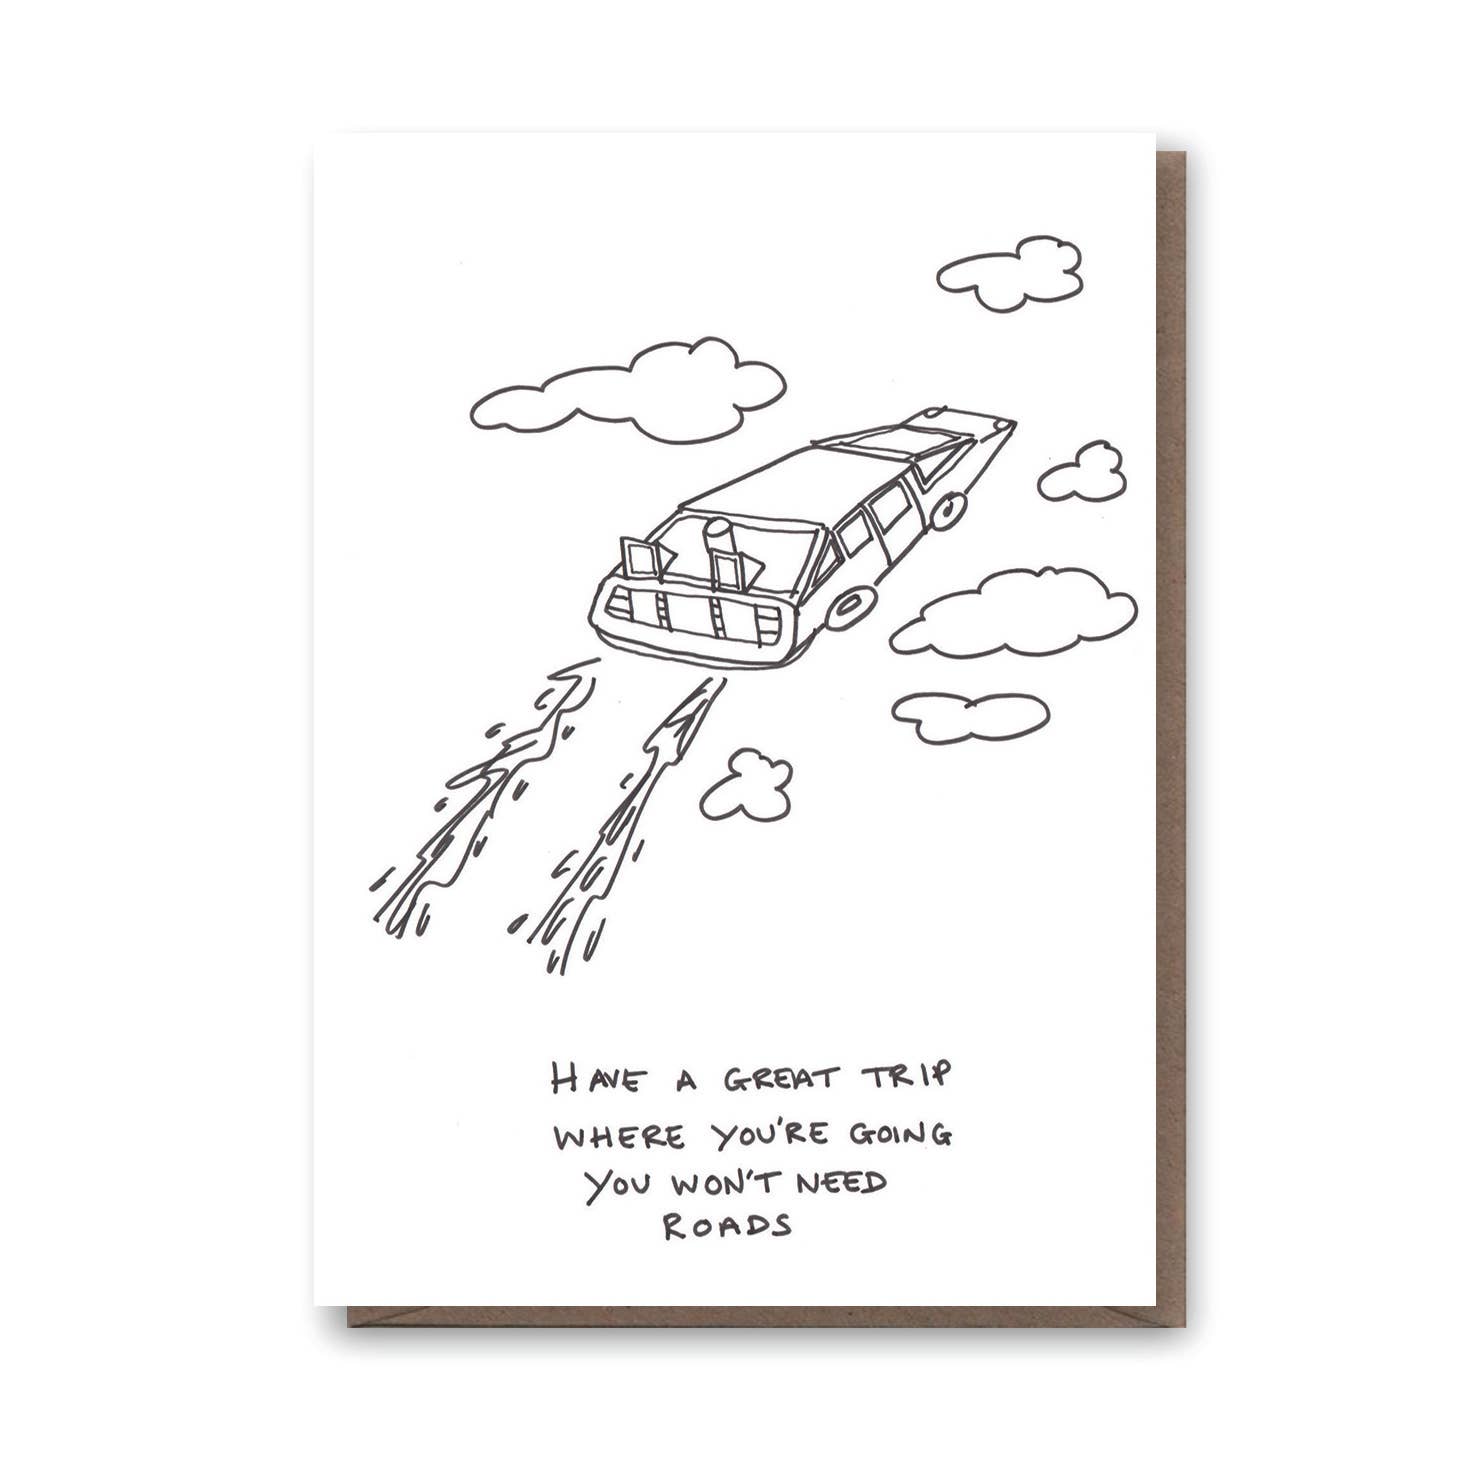 HAVE A GREAT TRIP
WHERE YOU'RE GOING
YOU WON'T NEED
ROADS